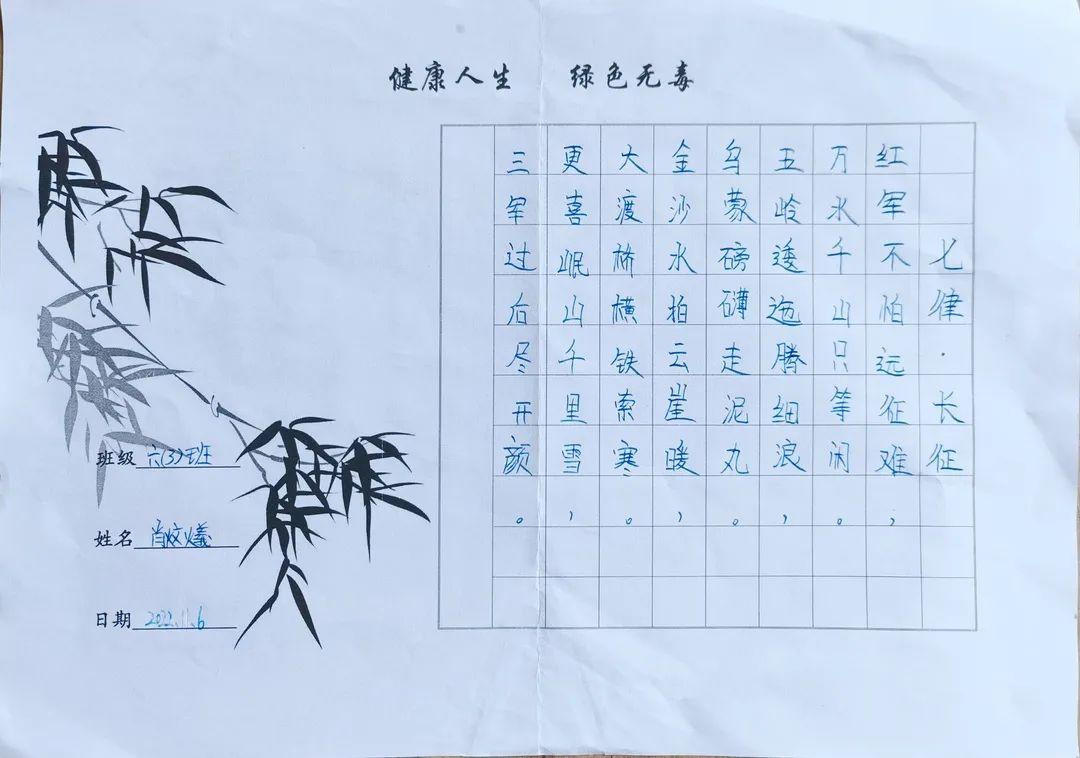 健康人生 绿色无毒
七律·长征
红军不怕远征难，
万水千山只等闲。
五岭逶迤腾细浪，
乌蒙磅礴走泥丸。
金沙水拍云崖暖，
大渡桥横铁索寒。
更喜岷山千里雪，
三军过后尽开颜。
班级 六(3)班
姓名 肖炆㸍
日期 2022.11.6